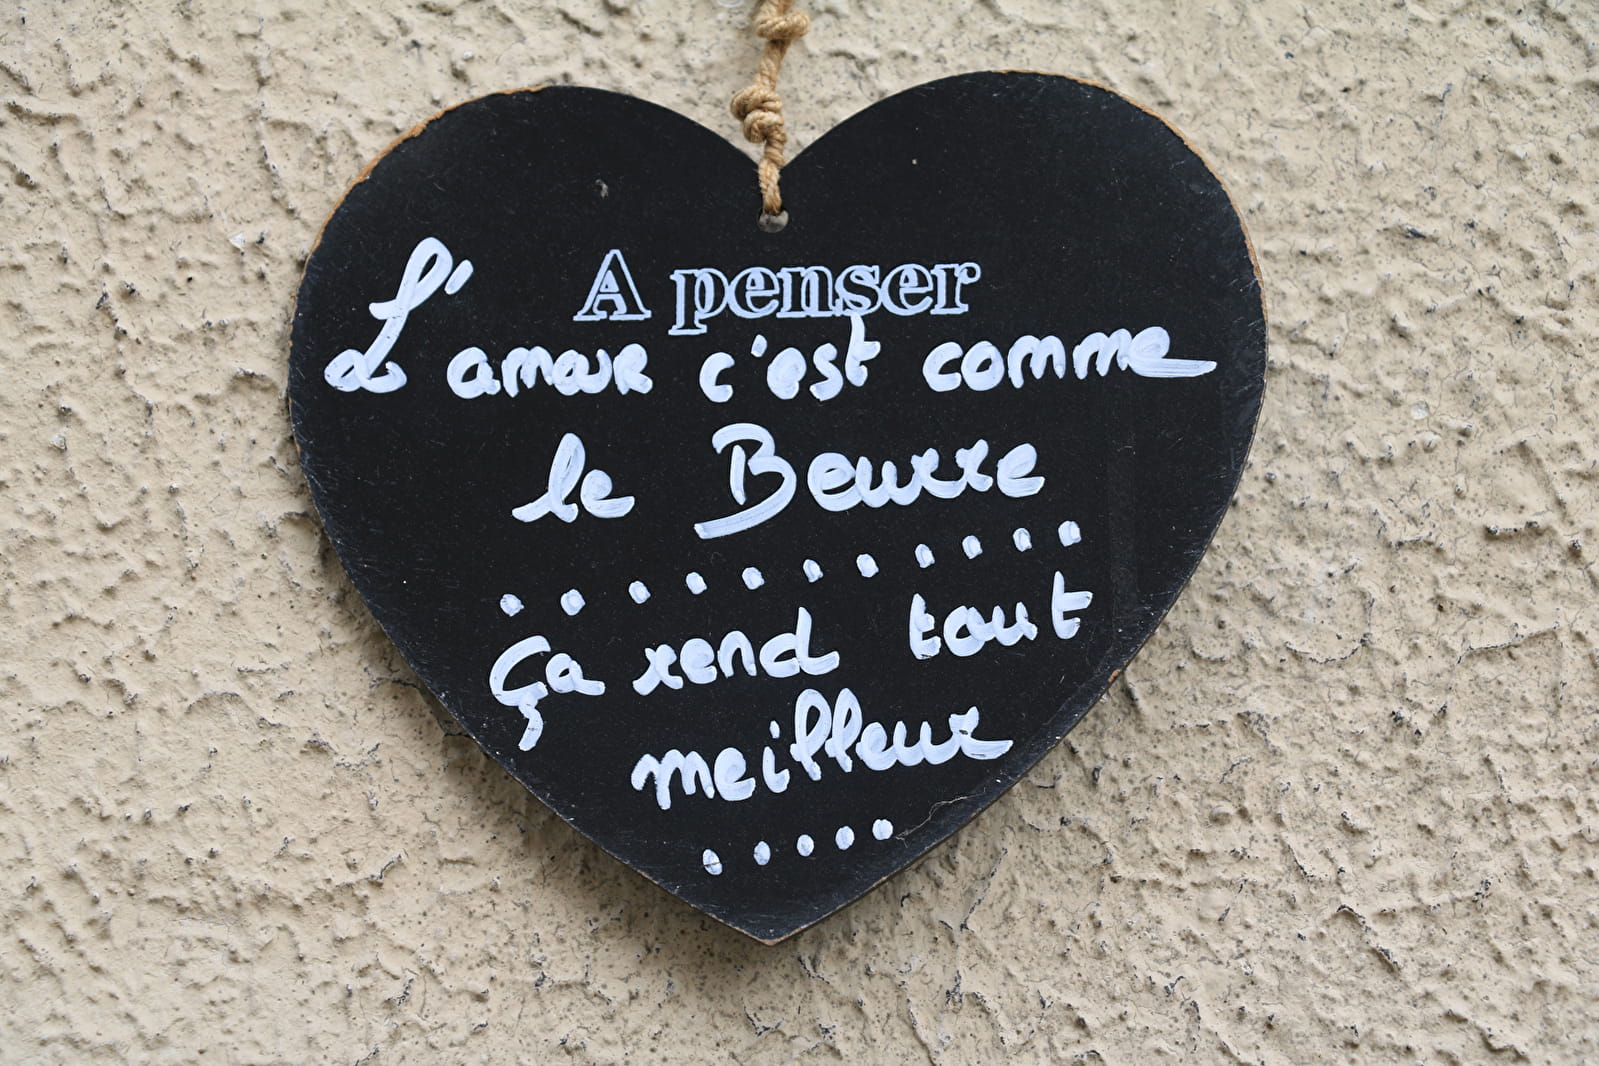 A penser
L'amour c'est comme
le Beurre
..........
...........
Ça rend tout
meilleur
.....